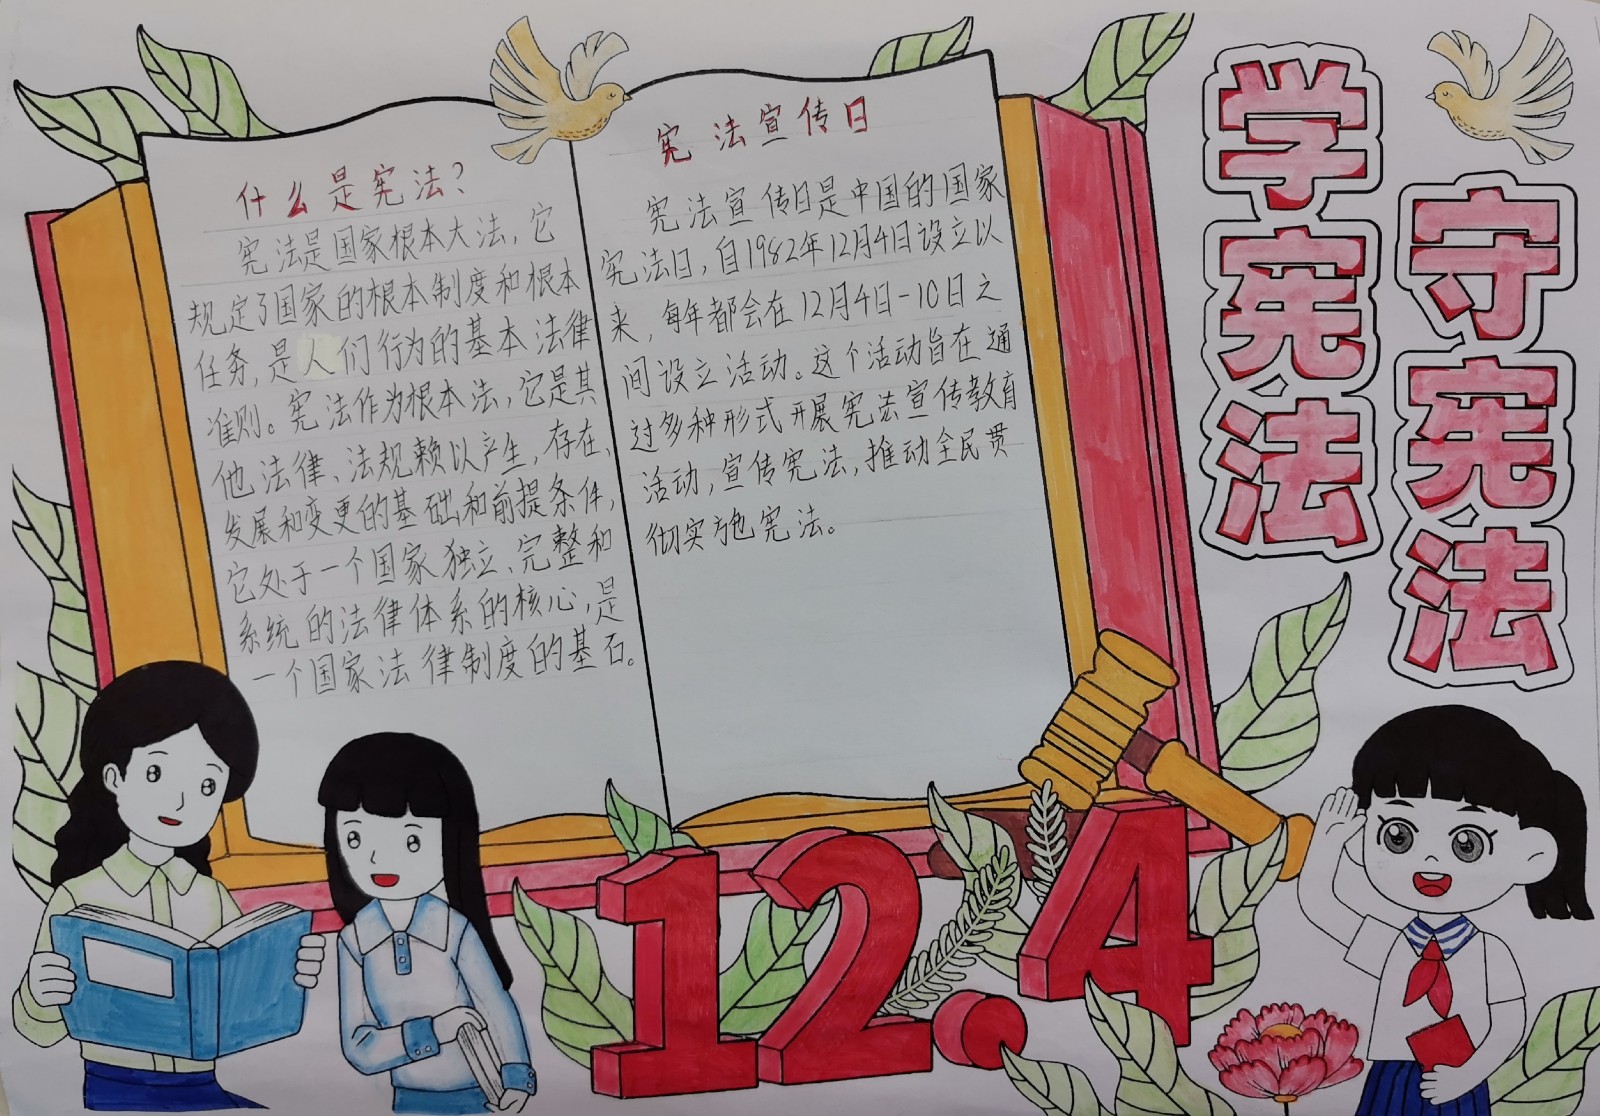 什么是宪法?
宪法是国家根本大法,它
规定了国家的根本制度和根本
任务,是人们行为的基本法律
准则。宪法作为根本法,它是其
他法律、法规赖以产生,存在、
发展和变更的基础和前提条件,
它处于一个国家独立、完整和
系统的法律体系的核心,是
一个国家法律制度的基石。
宪法宣传日
宪法宣传日是中国的国家
宪法日,自1982年12月4日设立以
来,每年都会在12月4日-10日之
间设立活动。这个活动旨在通
过多种形式开展宪法宣传教育
活动,宣传宪法,推动全民贯
彻实施宪法。
学宪法
守宪法
12.4